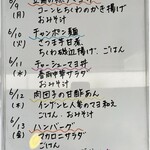 6/9
(月)
コーンとちくわのかき揚げ
おみそ汁
6/10
(火)
チャンポン麺
さつま芋甘煮
ちくわ磯辺揚げ
ごはん
6/11
(水)
チャーシューマヨ丼
春雨中華サラダ
おみそ汁
6/12
(木)
肉団子の甘酢あん
インゲンと人参のマヨ和え
ごはん
おみそ汁
6/13
(金)
ハンバーグ
マカロニサラダ
ごはん